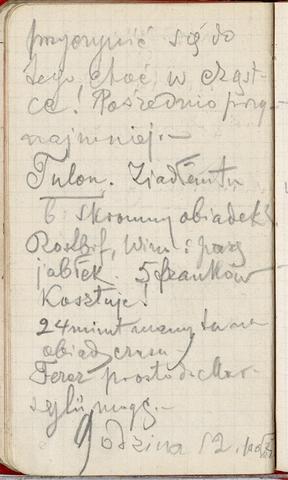 przyczynić się do
tego choć w cząst-
ce! Pośrednio przy-
najmniej.—
Tulon. Zjadłem tu
b. skromny obiadek!
Rostbef, wino i parę
jabłek. 5 franków
Kosztuje!
24 minut mamy tu na
obiad czasu.
Teraz prosto do Mar-
sylii mogę.—
Godzina 12.